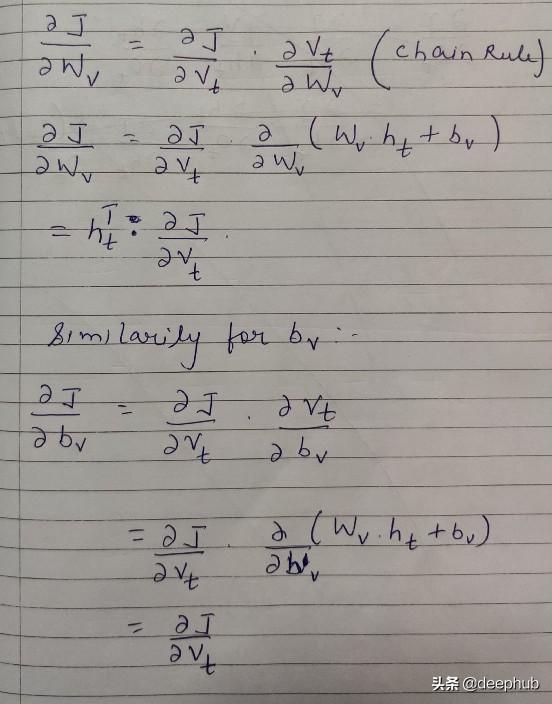 ∂J/∂W_v = ∂J/∂V_t · ∂V_t/∂W_v (Chain Rule)
∂J/∂W_v = ∂J/∂V_t · ∂/∂W_v (W_v · h_t + b_v)
= h_t^T · ∂J/∂V_t .
Similarily for b_v :-
∂J/∂b_v = ∂J/∂V_t . ∂V_t/∂b_v
= ∂J/∂V_t . ∂/∂b_v (W_v . h_t + b_v)
= ∂J/∂V_t
头条 @deephub